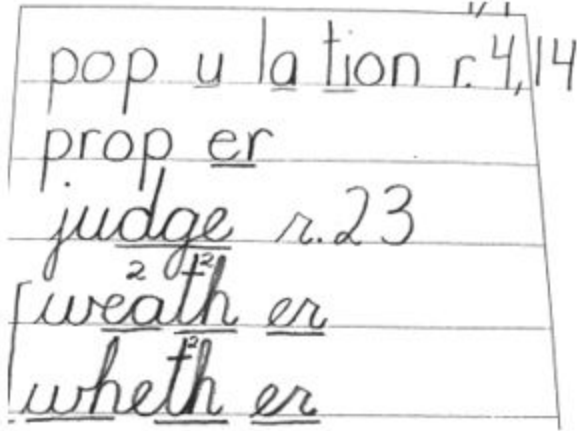 pop u la tion r. 4, 14
prop er
judge r. 23
2 2
weath er
2
wheth er